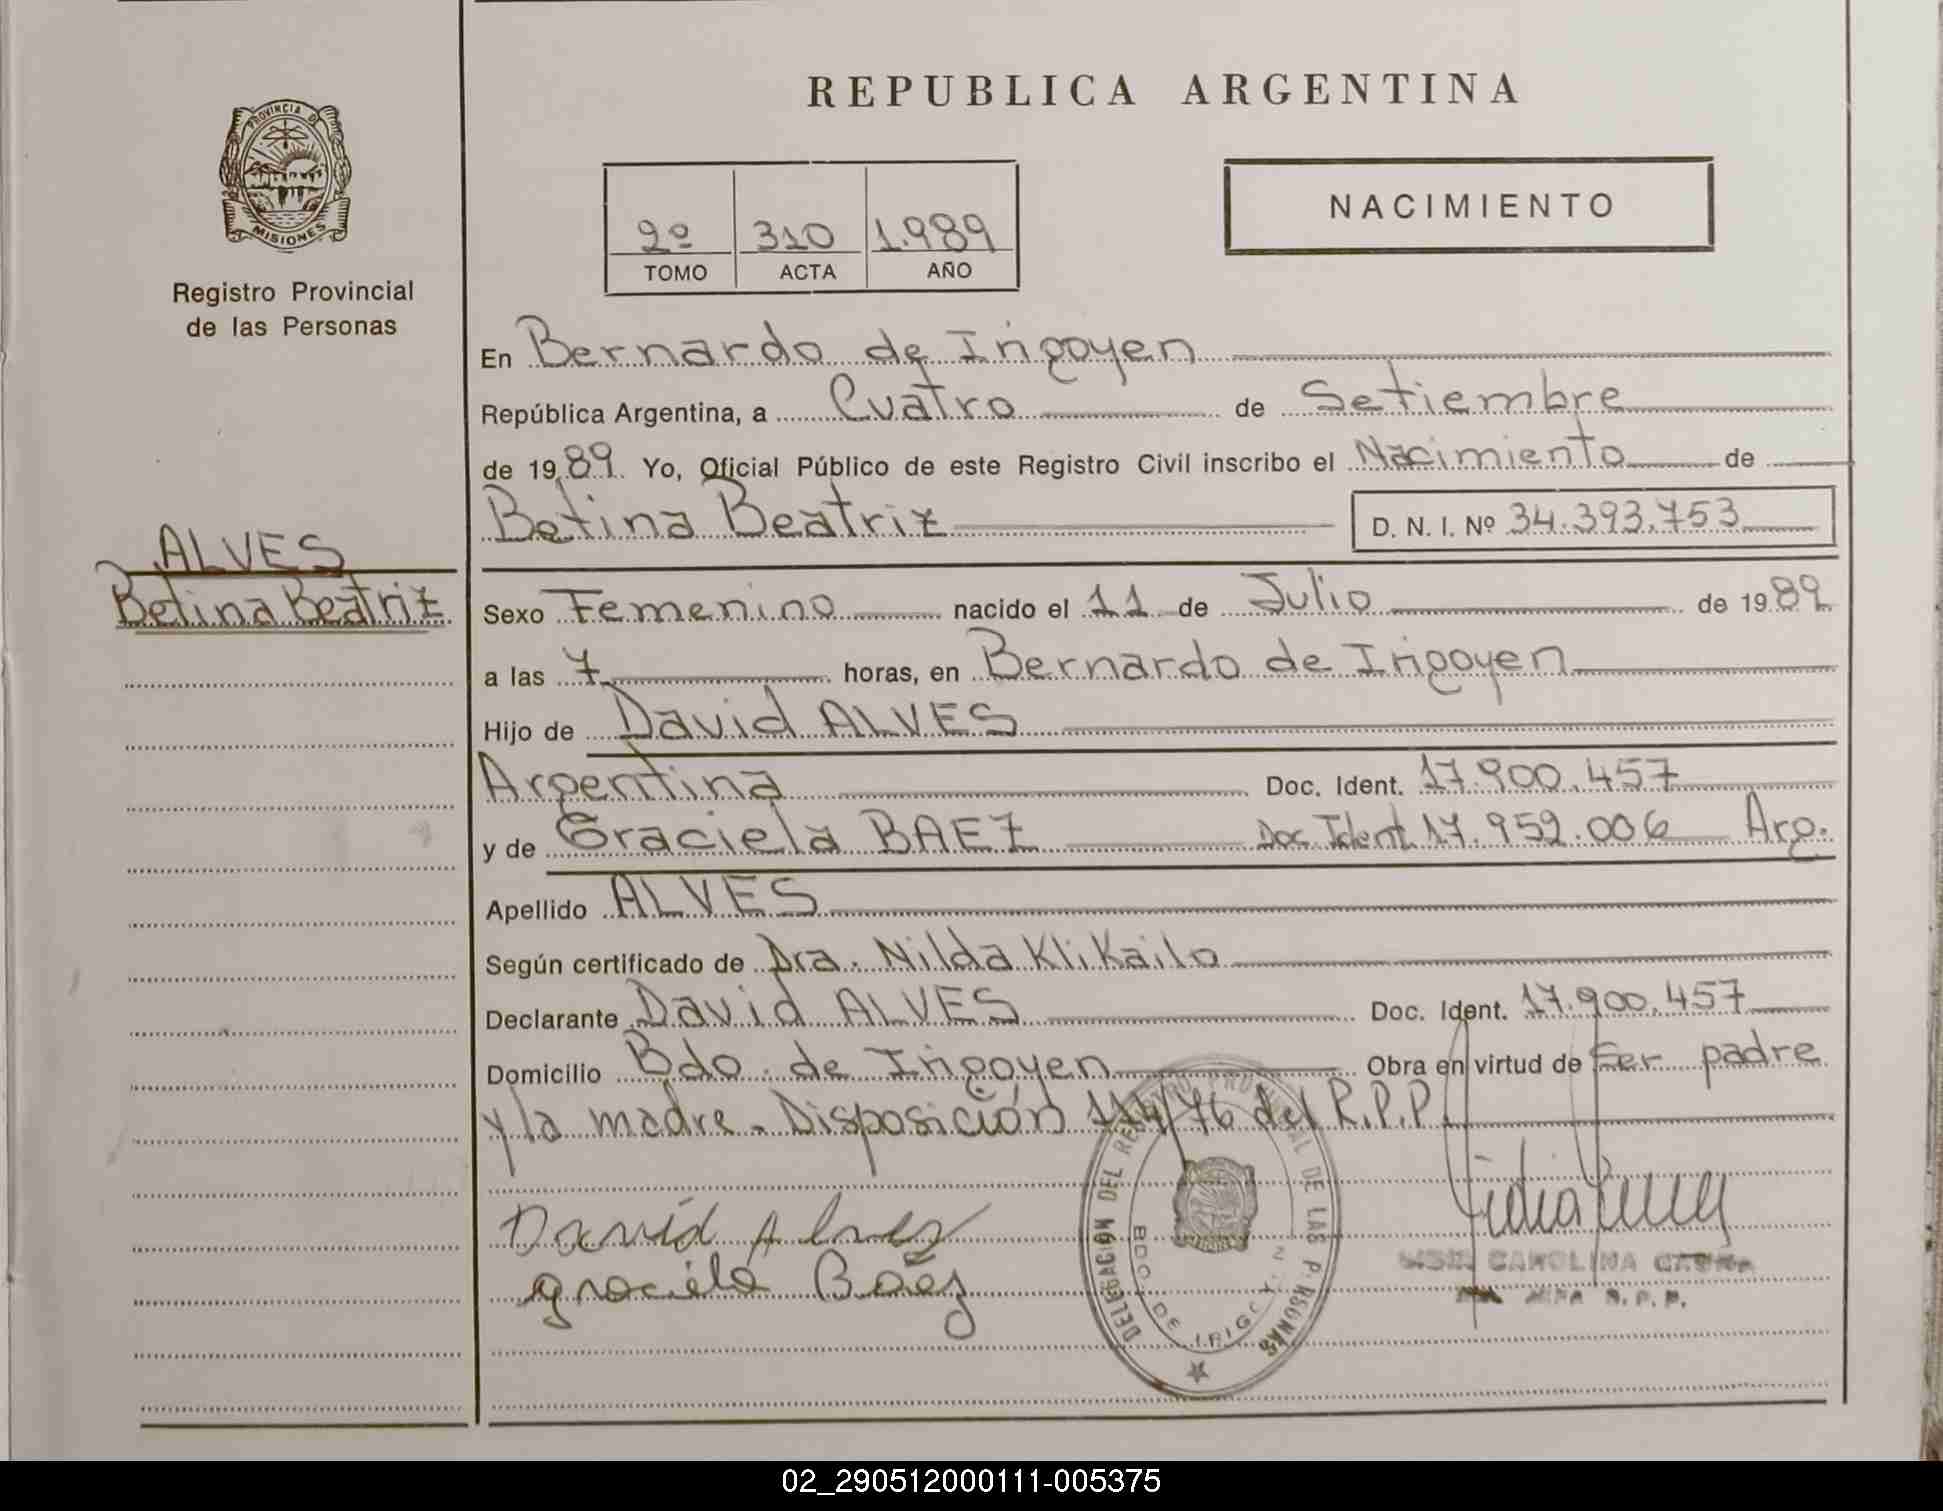 REPUBLICA ARGENTINA
PROVINCIA DE
MISIONES
Registro Provincial
de las Personas
NACIMIENTO
2º 310 1.989
TOMO ACTA AÑO
En Bernardo de Irigoyen
República Argentina, a Cuatro de Setiembre
de 1989 Yo, Oficial Público de este Registro Civil inscribo el Nacimiento de
Betina Beatriz D. N. I. Nº 34.393.753
ALVES
Betina Beatriz
Sexo Femenino nacido el 11 de Julio de 1989
a las 7 horas, en Bernardo de Irigoyen
Hijo de David ALVES
Argentina Doc. Ident. 17.900.457
y de Graciela BAEZ Doc Ident 17.952.006 Arg.
Apellido ALVES
Según certificado de Dra. Nilda Klikailo
Declarante David ALVES Doc. Ident. 17.900.457
Domicilio Bdo. de Irigoyen Obra en virtud de Ser padre
y la madre. Disposición 114/76 del R.P.P.
David Alves
graciela Baez
DELEGACION DEL REGISTRO PROVINCIAL DE LAS P RSONAS
BDO. DE IRIGOY
CAROLINA
R.P.P.
02_290512000111-005375